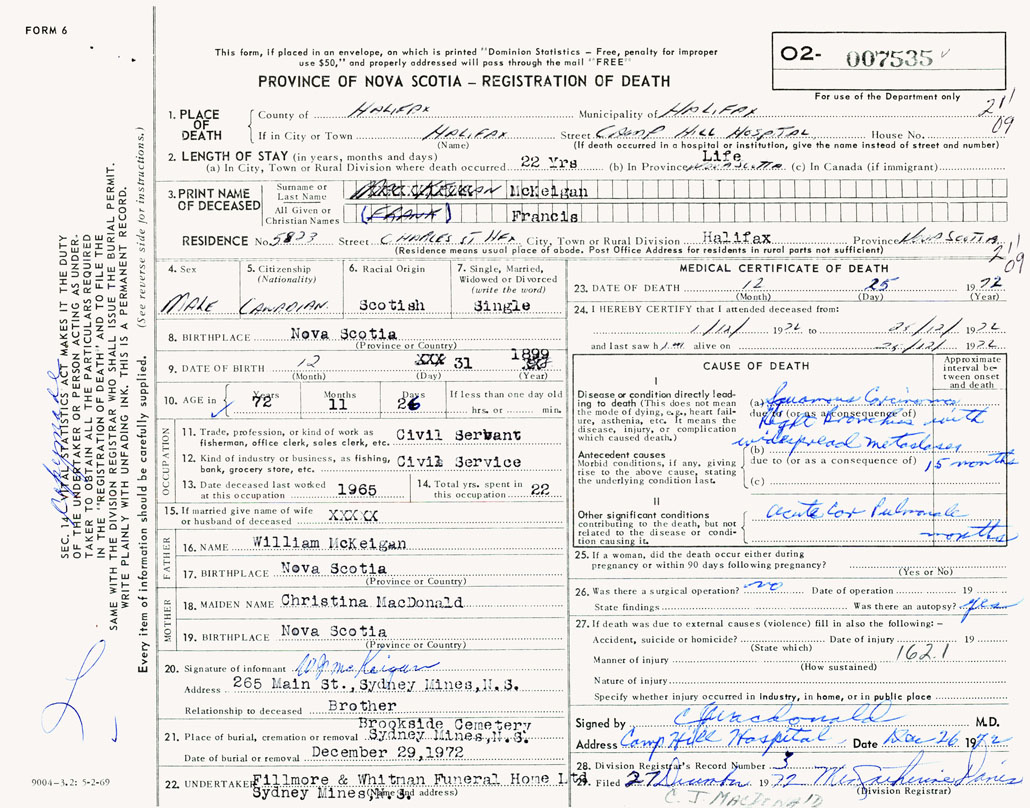 FORM 6
This form, if placed in an envelope, on which is printed "Dominion Statistics – Free, penalty for improper
use $50," and properly addressed will pass through the mail "FREE"
PROVINCE OF NOVA SCOTIA – REGISTRATION OF DEATH
02- 007535
For use of the Department only
211
09
1. PLACE OF DEATH
County of HALIFAX Municipality of HALIFAX
If in City or Town HALIFAX Street CAMP HILL HOSPITAL House No.
(Name) (If death occurred in a hospital or institution, give the name instead of street and number)
2. LENGTH OF STAY (in years, months and days)
(a) In City, Town or Rural Division where death occurred 22 Yrs (b) In Province Life (c) In Canada (if immigrant)
3. PRINT NAME OF DECEASED
Surname or Last Name McKeigan
All Given or Christian Names (FRANK) Francis
RESIDENCE No. 5823 Street CHARLES ST HFX City, Town or Rural Division Halifax Province NOVA SCOTIA
(Residence means usual place of abode. Post Office Address for residents in rural parts not sufficient)
211
09
4. Sex MALE
5. Citizenship (Nationality) CANADIAN
6. Racial Origin Scotish
7. Single, Married, Widowed or Divorced (write the word) Single
8. BIRTHPLACE Nova Scotia
(Province or Country)
9. DATE OF BIRTH 12 XXX 31 1899
(Month) (Day) (Year)
10. AGE in { Years 72 Months 11 Days 26 If less than one day old
hrs. or min.
OCCUPATION
11. Trade, profession, or kind of work as
fisherman, office clerk, sales clerk, etc. Civil Servant
12. Kind of industry or business, as fishing,
bank, grocery store, etc. Civil Service
13. Date deceased last worked
at this occupation 1965
14. Total yrs. spent in
this occupation 22
15. If married give name of wife
or husband of deceased XXXXX
FATHER
16. NAME William McKeigan
17. BIRTHPLACE Nova Scotia
(Province or Country)
MOTHER
18. MAIDEN NAME Christina MacDonald
19. BIRTHPLACE Nova Scotia
(Province or Country)
20. Signature of informant WJ McKeigan
Address 265 Main St., Sydney Mines, N.S.
Relationship to deceased Brother
Brookside Cemetery
21. Place of burial, cremation or removal Sydney Mines, N.S.
Date of burial or removal December 29, 1972
22. UNDERTAKER Fillmore & Whitman Funeral Home Ltd
Sydney Mines, N.S.
(Name and address)
MEDICAL CERTIFICATE OF DEATH
23. DATE OF DEATH 12 25 1972
(Month) (Day) (Year)
24. I HEREBY CERTIFY that I attended deceased from:
1/12/ 1972 to 25/12/ 1972
and last saw him alive on 25/12/ 1972
CAUSE OF DEATH
Approximate interval between onset and death
I
Disease or condition directly leading to death (This does not mean the mode of dying, e.g., heart failure, asthenia, etc. It means the disease, injury, or complication which caused death.)
(a) Squamous Carcinoma
due to (or as a consequence of)
Right Bronchus with
(b) widespread metastases
due to (or as a consequence of) 15 months
(c)
Antecedent causes
Morbid conditions, if any, giving rise to the above cause, stating the underlying condition last.
II
Other significant conditions
contributing to the death, but not related to the disease or condition causing it.
Acute Cor Pulmonale
months
25. If a woman, did the death occur either during
pregnancy or within 90 days following pregnancy?
(Yes or No)
26. Was there a surgical operation? no Date of operation 19
State findings Was there an autopsy? yes
27. If death was due to external causes (violence) fill in also the following: –
Accident, suicide or homicide? Date of injury 19
(State which)
162.1
Manner of injury
(How sustained)
Nature of injury
Specify whether injury occurred in industry, in home, or in public place
Signed by CJ Macdonald M.D.
Address Camp Hill Hospital Date Dec 26 1972
28. Division Registrar's Record Number 3
29. Filed 27 December 1972 Mrs Catherine Davis
(Division Registrar)
C. J. MACDONALD
SEC. 14 VITAL STATISTICS ACT MAKES IT THE DUTY
OF THE UNDERTAKER OR PERSON ACTING AS UNDER-
TAKER TO OBTAIN ALL THE PARTICULARS REQUIRED
IN THE "REGISTRATION OF DEATH" AND TO FILE THE
SAME WITH THE DIVISION REGISTRAR WHO SHALL ISSUE THE BURIAL PERMIT.
WRITE PLAINLY WITH UNFADING INK. THIS IS A PERMANENT RECORD.
Every item of information should be carefully supplied. (See reverse side for instructions.)
9004-3.2: 5-2-69